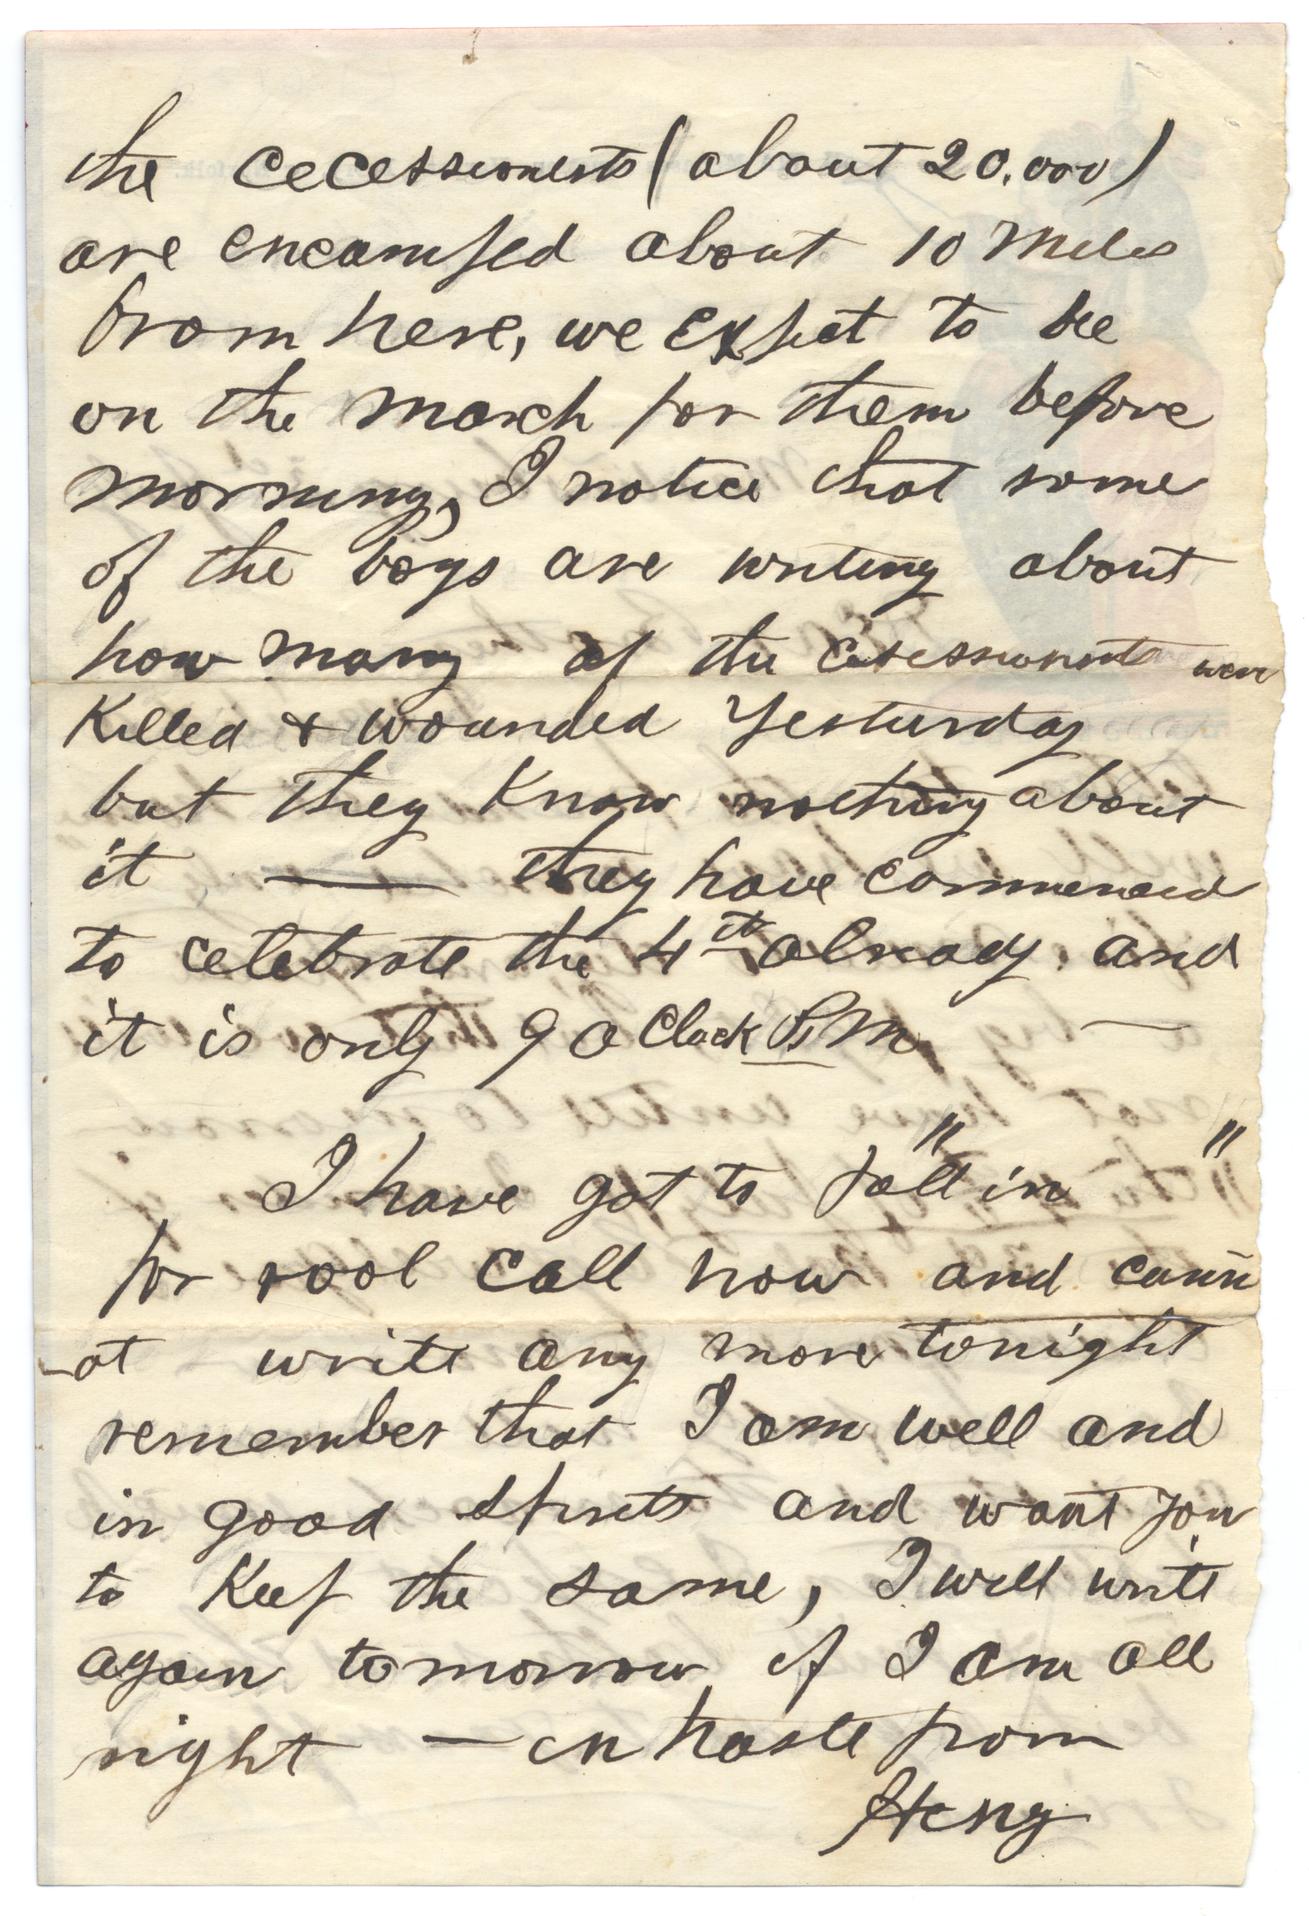 the cecessionests (about 20,000)
are encamped about 10 Miles
from here, we expect to be
on the march for them before
morning, I notice that some
of the boys are writing about
how many of the cesessionests were
Killed & wounded Yesturday
but they Know nothing about
it — they have commenced
to celebrate the 4th already and
it is only 9 O Clock P,M —
I have got to "fall in"
for rool call now and cann
-ot write any more tonight
remember that I am well and
in good spirits and want you
to Keep the same, I will write
again tomorrow if I am all
right — in haste from
Heny